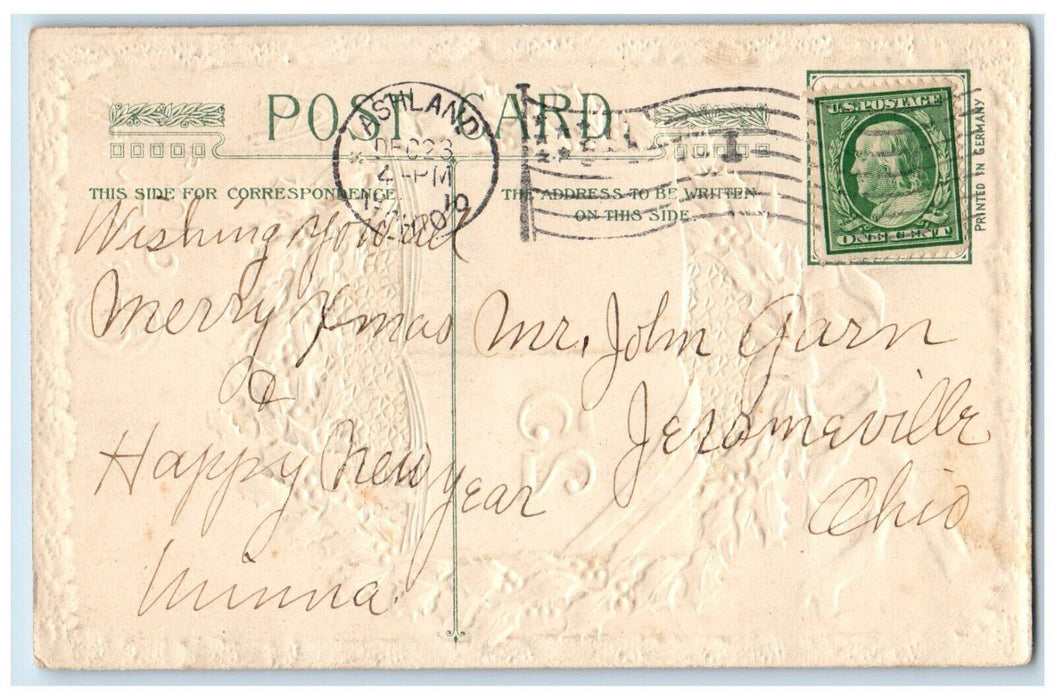 POST CARD
THIS SIDE FOR CORRESPONDENCE.
THE ADDRESS TO BE WRITTEN
ON THIS SIDE.
ASHLAND
DEC 23
4-PM
U.S. POSTAGE
ONE CENT
PRINTED IN GERMANY
Wishing You
Merry Xmas
&
Happy New Year
Minna
Mr. John Garn
Jeromeville
Ohio